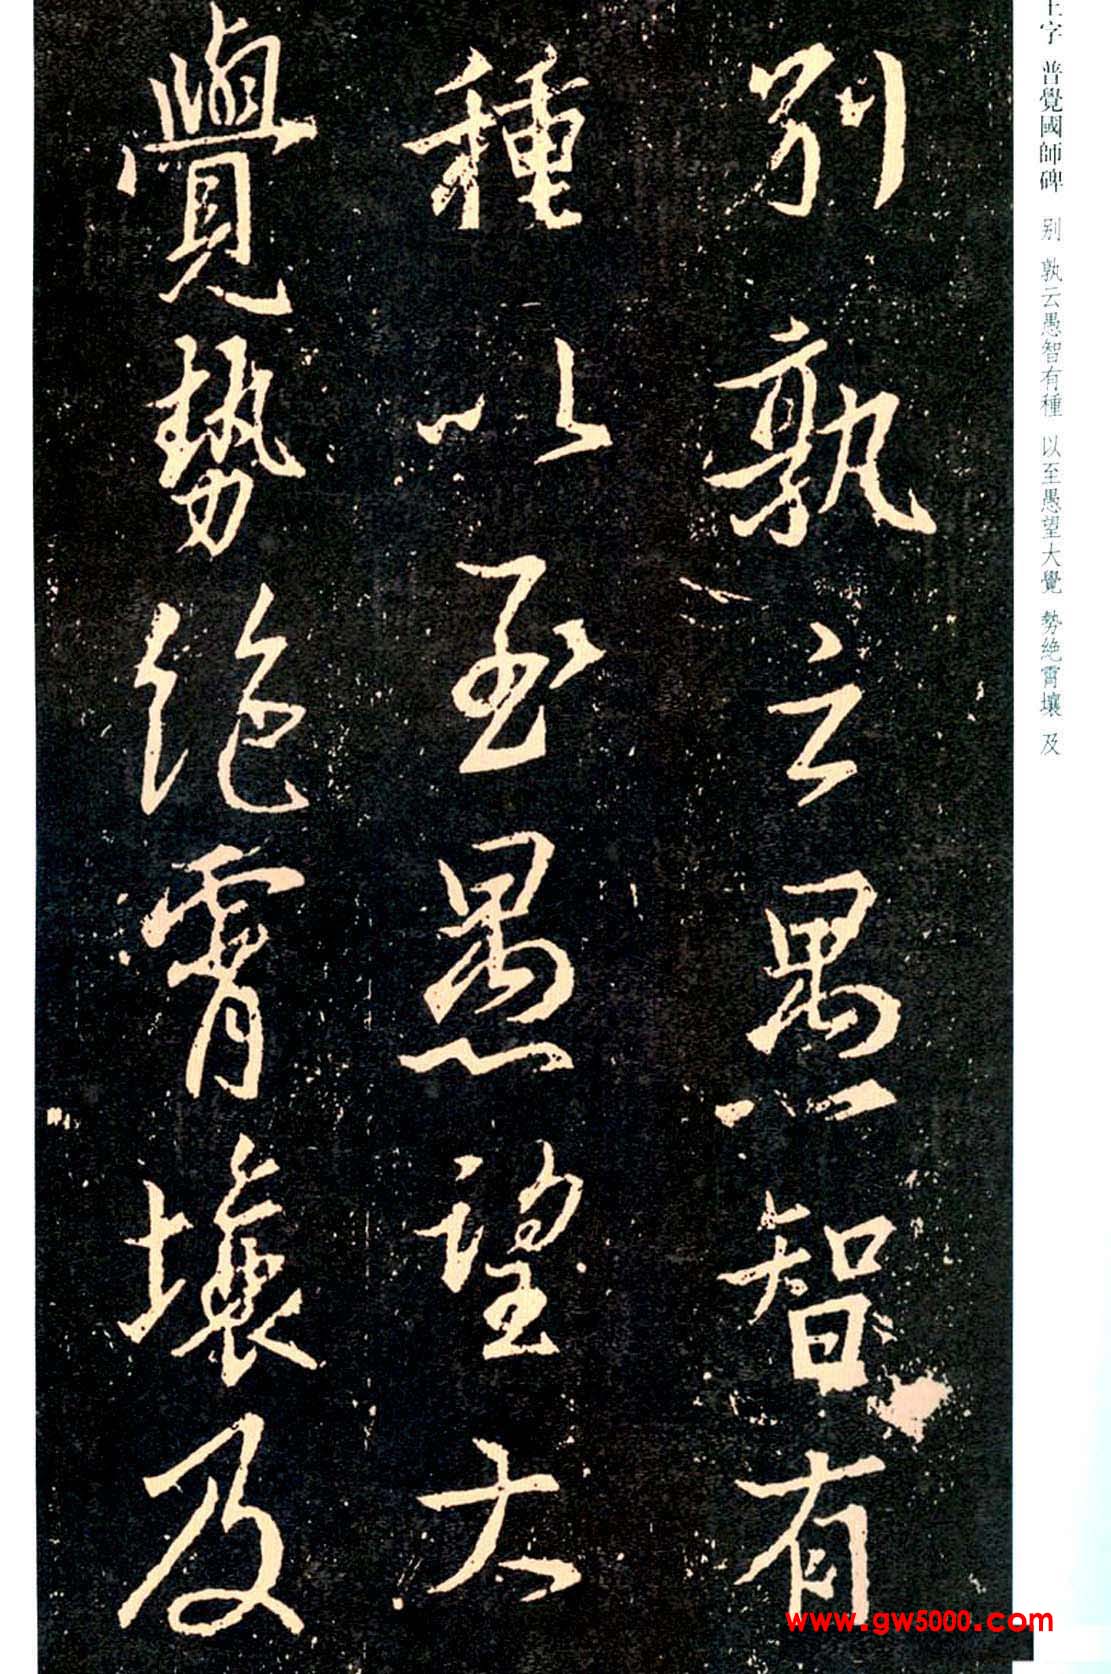 王字 普覺國師碑 别 孰云愚智有種 以至愚望大覺 勢絶霄壤 及
别孰云愚智有
種以至愚望大
覺勢絶霄壤及
www.gw5000.com